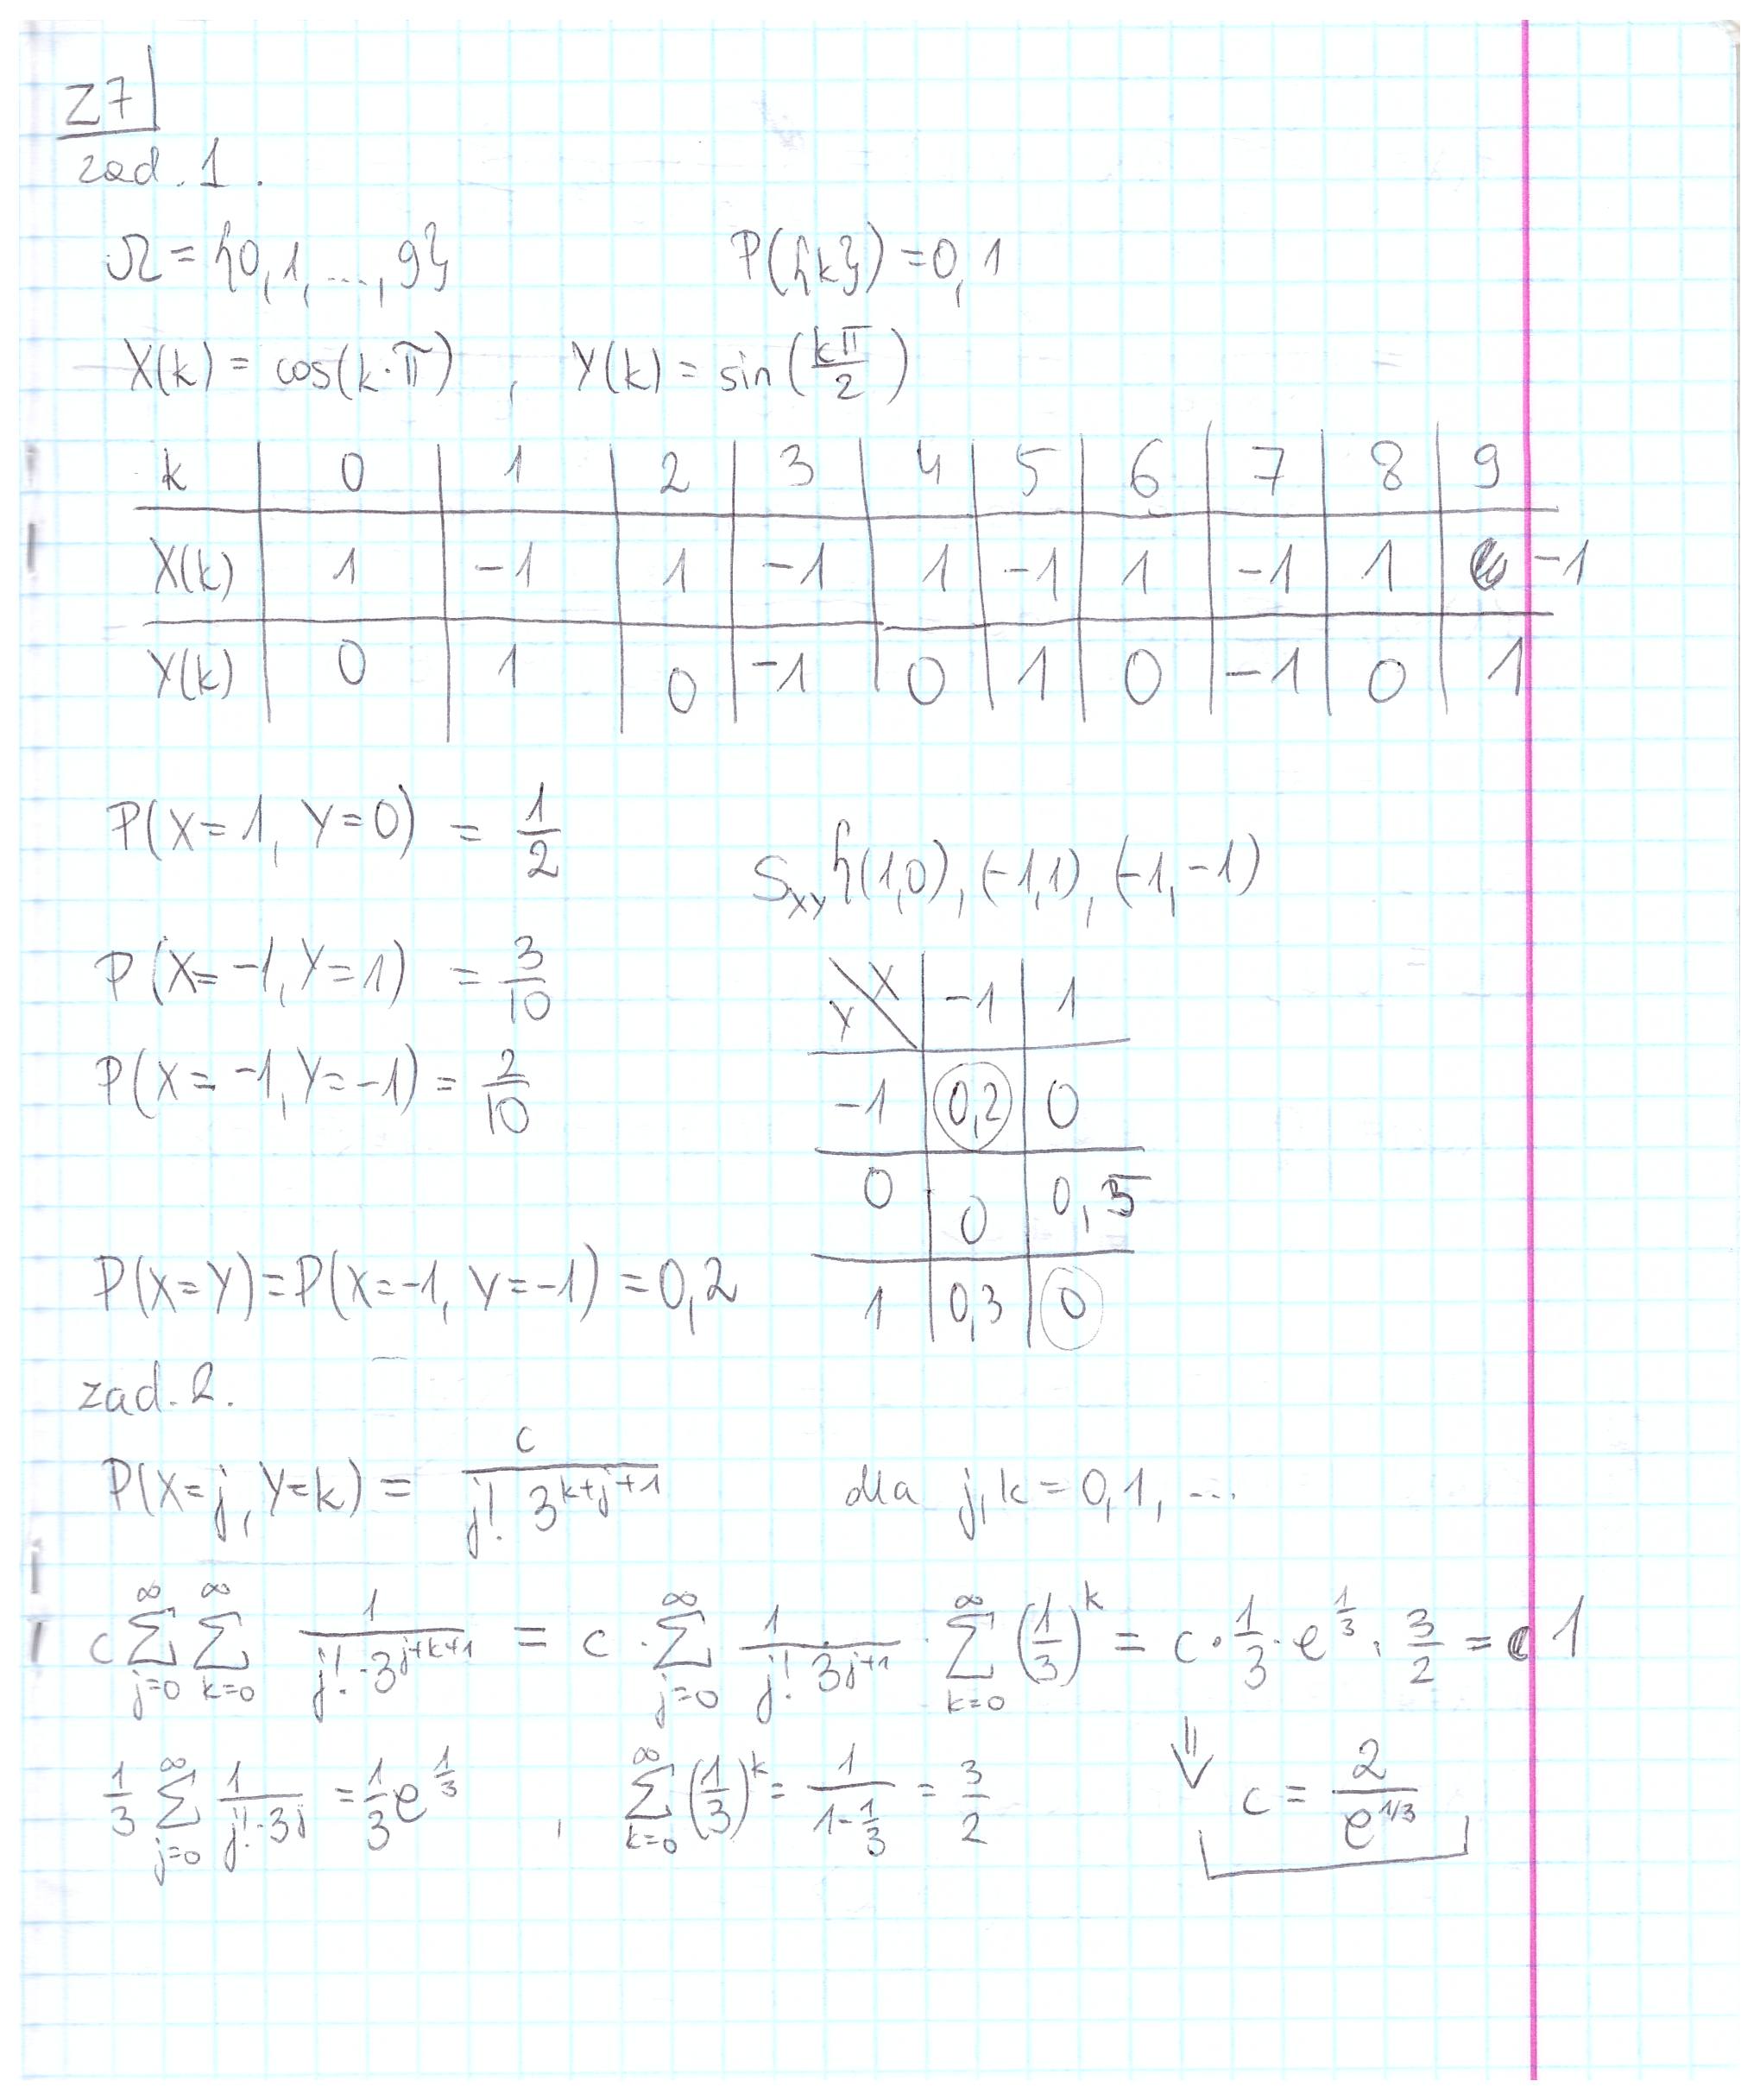 Z7
zad. 1.
Ω = {0, 1, ..., 9}    P({k}) = 0,1
X(k) = cos(k·π) , Y(k) = sin(kπ/2)
k | 0 | 1 | 2 | 3 | 4 | 5 | 6 | 7 | 8 | 9
X(k) | 1 | -1 | 1 | -1 | 1 | -1 | 1 | -1 | 1 | -1
Y(k) | 0 | 1 | 0 | -1 | 0 | 1 | 0 | -1 | 0 | 1
P(X=1, Y=0) = 1/2
S_XY {(1,0), (-1,1), (-1,-1)
P(X=-1, Y=1) = 3/10
P(X=-1, Y=-1) = 2/10
Y \ X | -1 | 1
-1 | 0,2 | 0
0 | 0 | 0,5
1 | 0,3 | 0
P(X=Y) = P(X=-1, Y=-1) = 0,2
zad. 2.
P(X=j, Y=k) = c / (j! 3^(k+j+1))    dla j, k = 0, 1, ...
c ∑_{j=0}^{∞} ∑_{k=0}^{∞} 1/(j!·3^(j+k+1)) = c · ∑_{j=0}^{∞} 1/(j! 3^(j+1)) · ∑_{k=0}^{∞} (1/3)^k = c · 1/3 · e^(1/3) · 3/2 = 1
1/3 ∑_{j=0}^{∞} 1/(j!·3^j) = 1/3 e^(1/3) , ∑_{k=0}^{∞} (1/3)^k = 1/(1-1/3) = 3/2    ⇓ c = 2/e^(1/3)